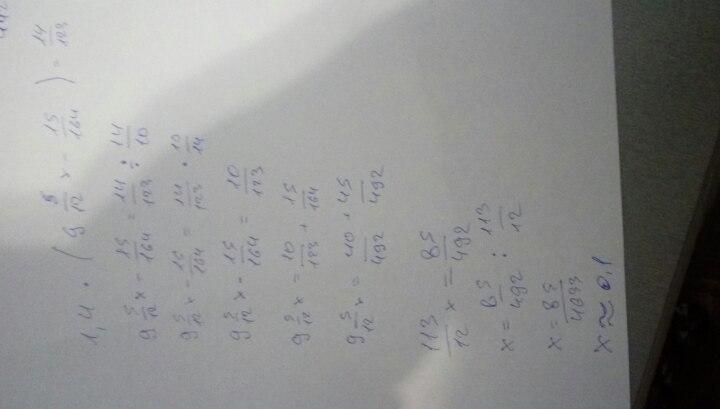 1,4 · ( 9 5/12 x - 15/164 ) = 14/123
9 5/12 x - 15/164 = 14/123 : 14/10
9 5/12 x - 15/164 = 14/123 · 10/14
9 5/12 x - 15/164 = 10/123
9 5/12 x = 10/123 + 15/164
9 5/12 x = 40+45/492
113/12 x = 85/492
x = 85/492 : 113/12
x = 85/4633
x ≈ 0,1